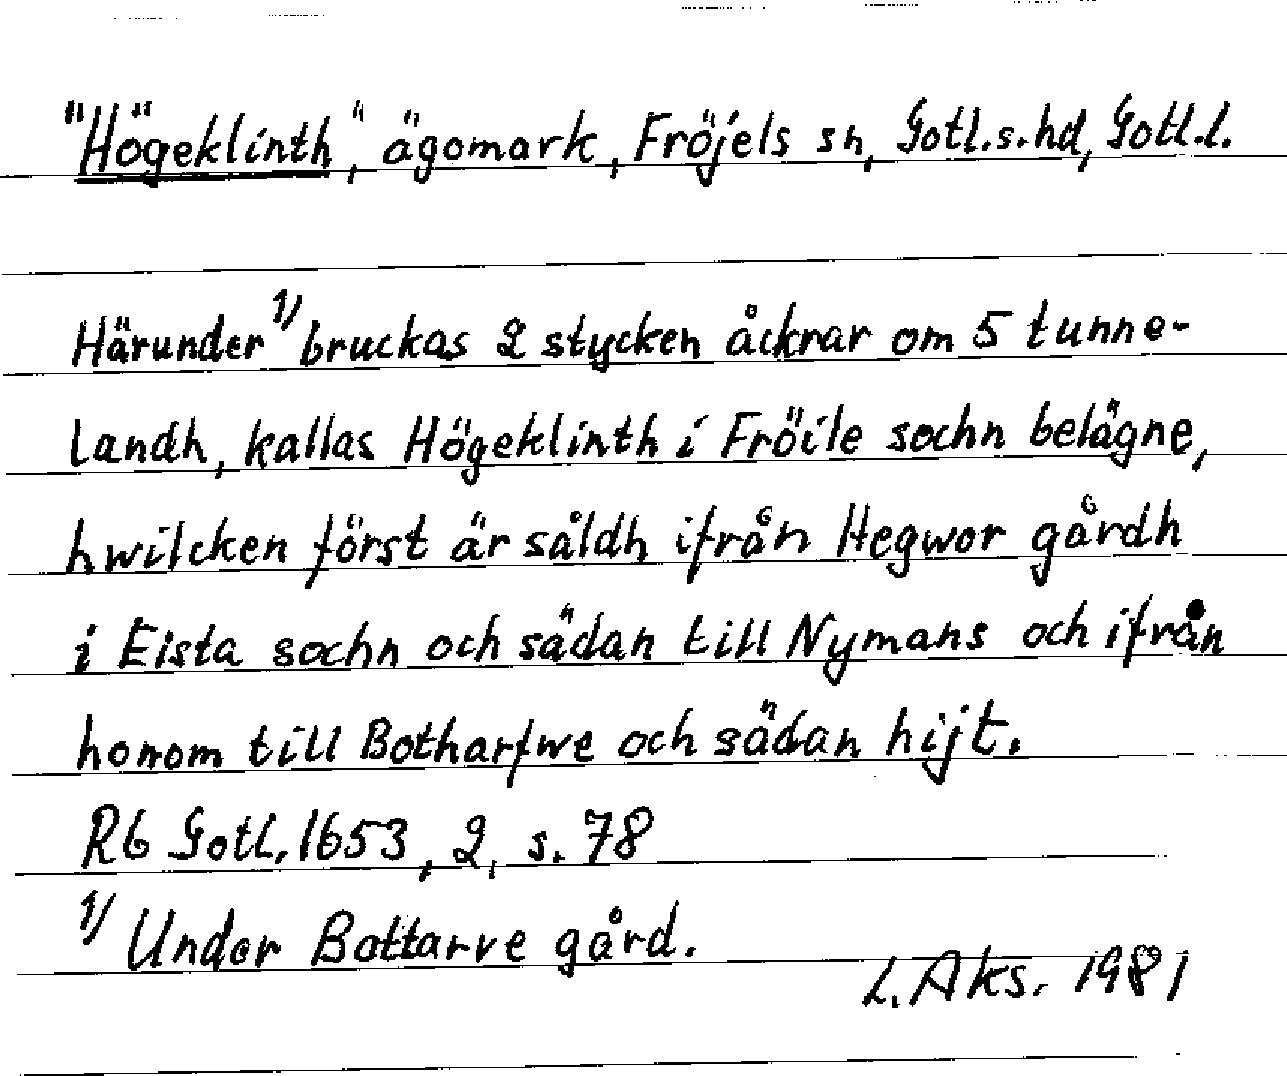 "Högeklinth", ägomark, Fröjels sn, Gotl.s.hd, Gotl.l.
Härunder 1/ bruckas 2 stycken åckrar om 5 tunne-
landh, kallas Högeklinth i Fröile sochn belägne,
hwilcken först är såldh ifrån Hegwor gårdh
i Eista sochn och sädan till Nymans och ifrån
honom till Botharfwe och sädan hijt.
Rb Gotl. 1653, 2, s. 78
1/ Under Bottarve gård.
L. Aks. 1981